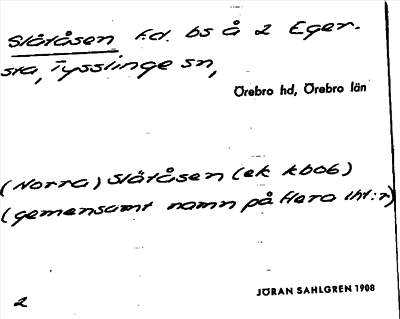 Slätåsen f.d. bs å 2 Eger-
sta, Tysslinge sn,
Örebro hd, Örebro län
(Norra) Slätåsen (ek kbo6)
(gemensamt namn på flera lht:r)
2
JÖRAN SAHLGREN 1908